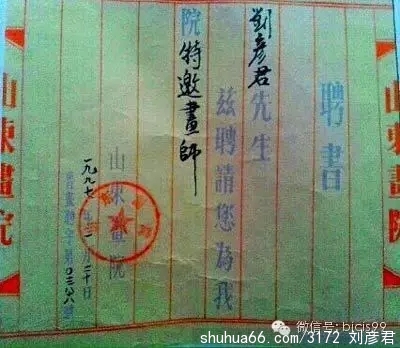 山東畫院
聘書
刘彦君先生
兹聘請您為我
院特邀畫師
山東畫院
一九九七年 月二十日
畫聘字第0三 八號
山東畫院
微信号: bjcjs99
shuhua66.com/3172 刘彦君